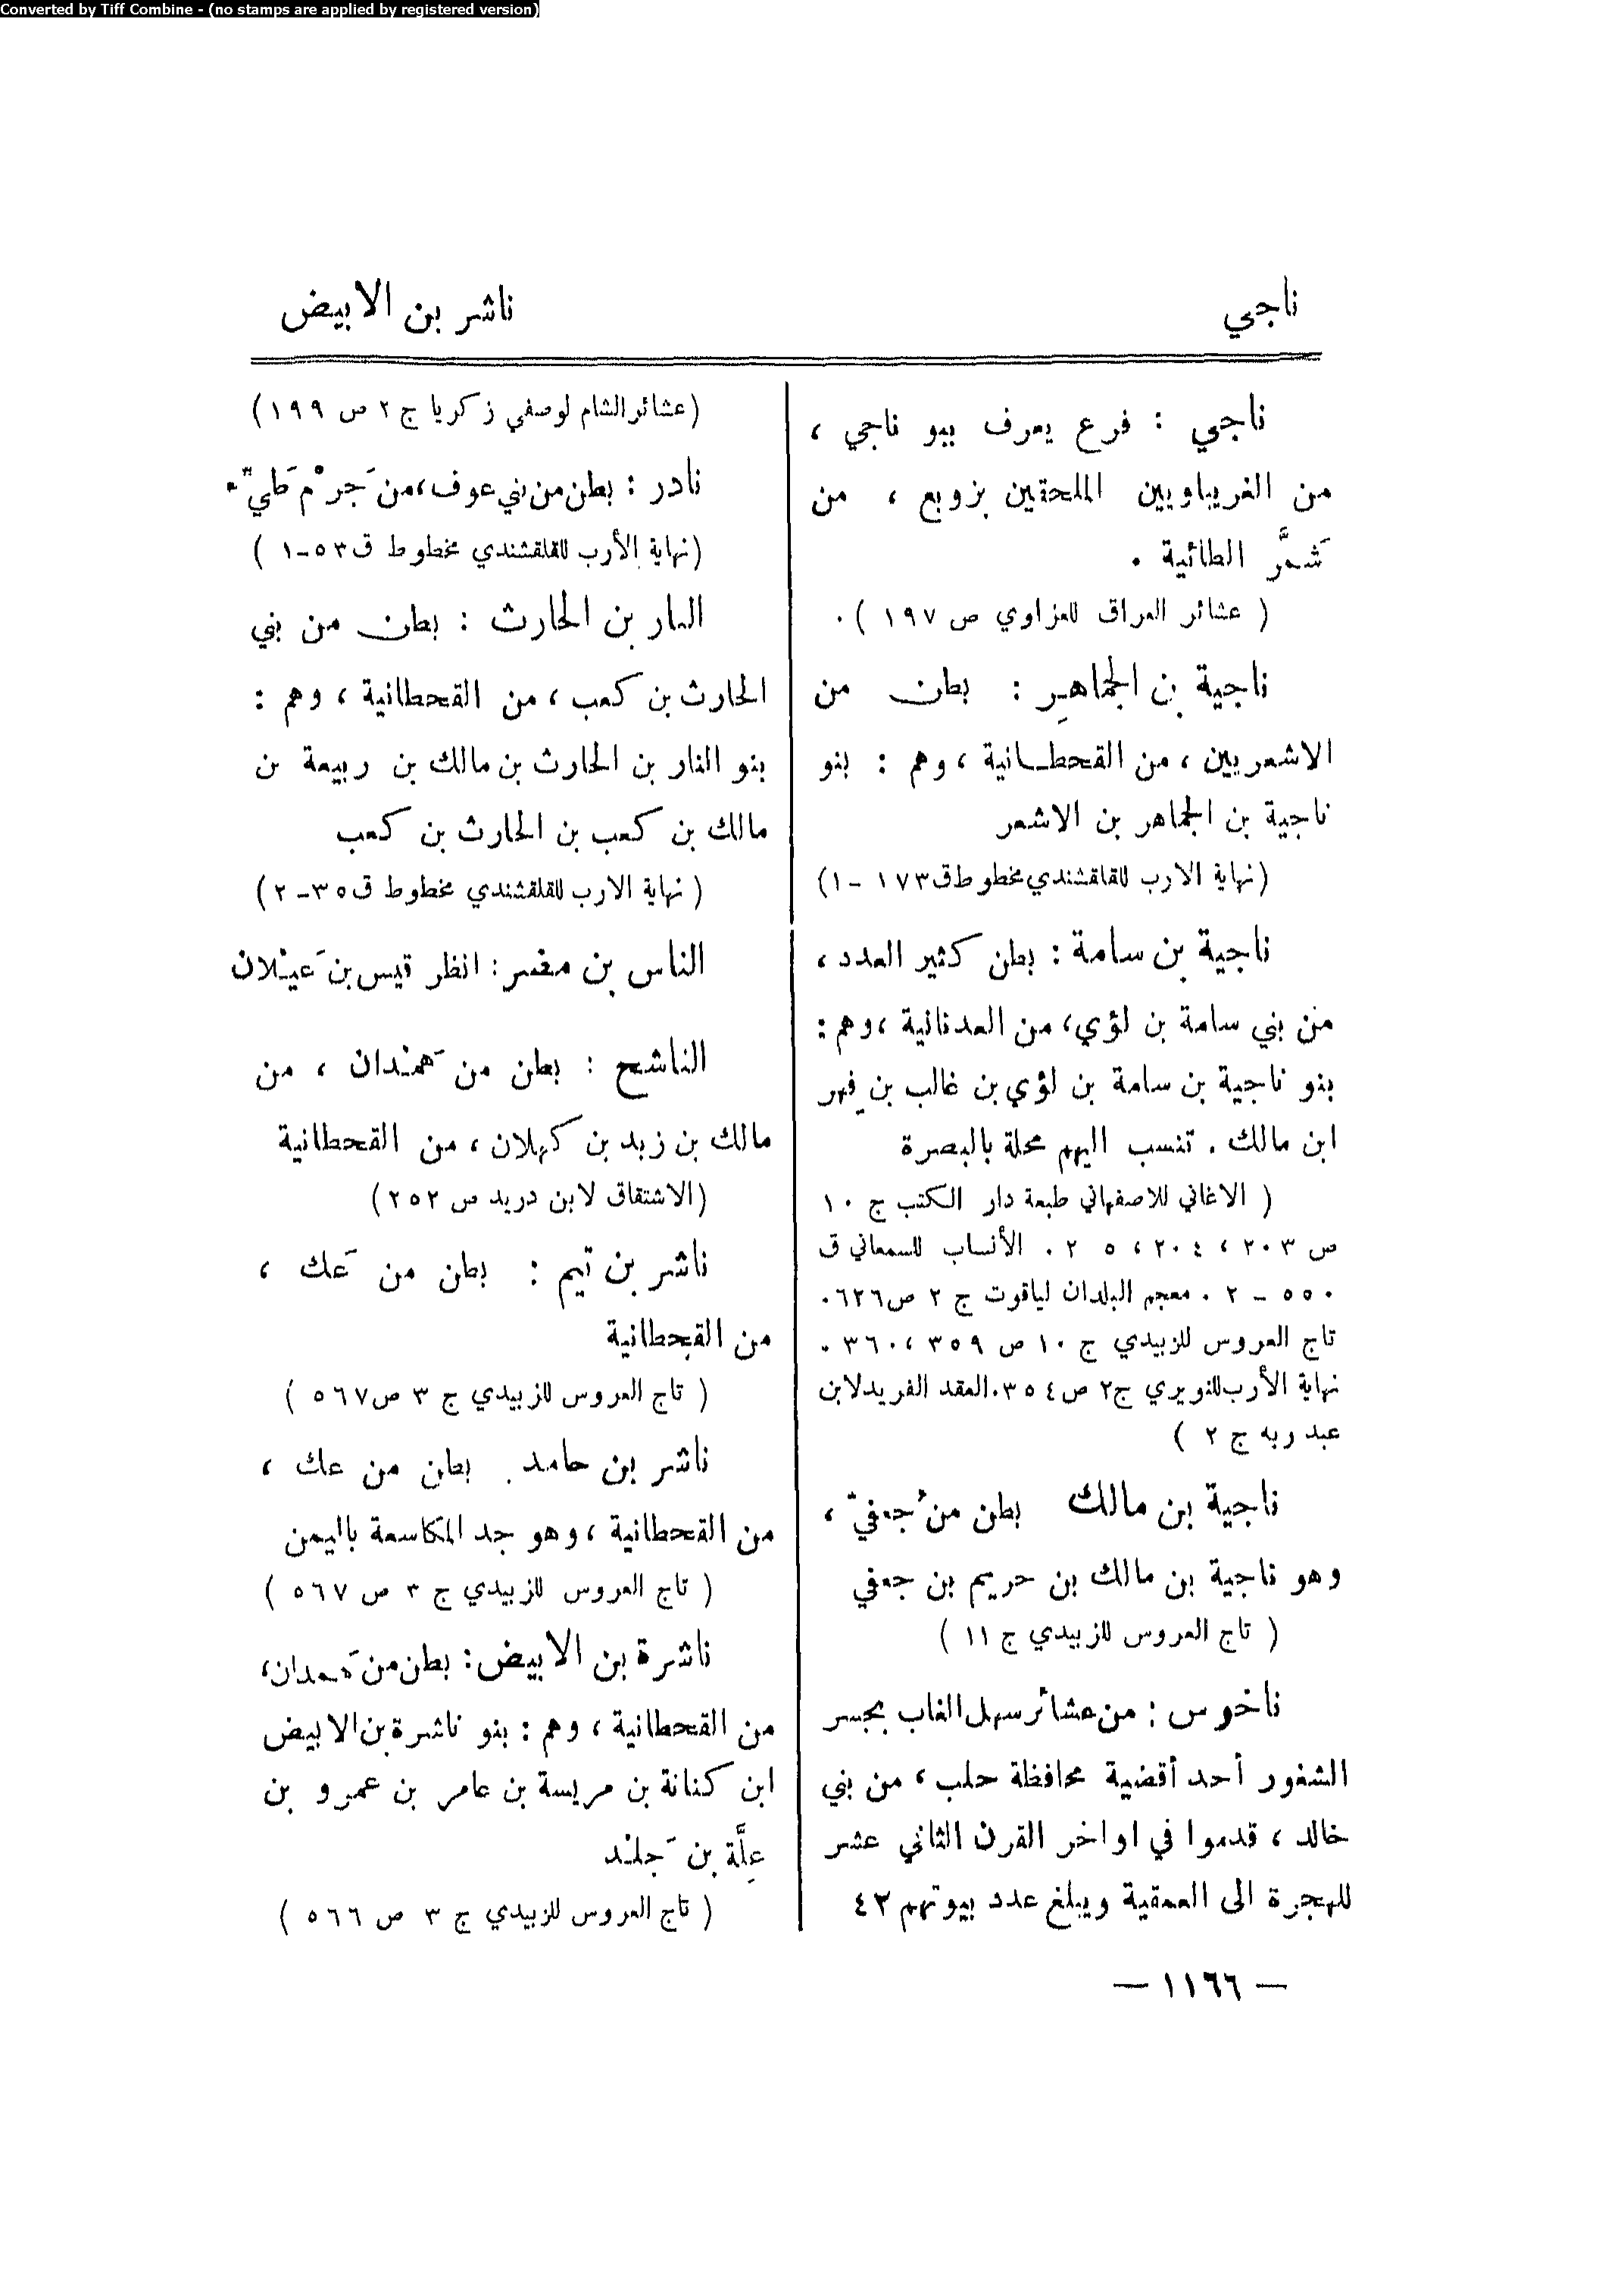 Converted by Tiff Combine - (no stamps are applied by registered version)
ناجي
ناشر بن الابيض
ناجي : فرع يعرف ببو ناجي ،
من الغريباويين الملحقين بزوبع ، من
شمَّر الطائية .
( عشائر العراق للعزاوي ص ١٩٧ ) .
ناجية بن الجماهر : بطن من
الاشعريين ، من القحطانية ، وهم : بنو
ناجية بن الجماهر بن الاشعر
(نهاية الارب للقلقشندي مخطوط ق ١٧٣ - ١)
ناجية بن سامة : بطن كثير العدد ،
من بني سامة بن لؤي ، من العدنانية ، وهم :
بنو ناجية بن سامة بن لؤي بن غالب بن فهر
ابن مالك . تنسب اليهم محلة بالبصرة
( الاغاني للاصفهاني طبعة دار الكتب ج ١٠
ص ٢٠٣ ، ٢٠٤ ، ٢٠٥ . الأنساب للسمعاني ق
٥٥٠ - ٢ . معجم البلدان لياقوت ج ٢ ص ٦٢٦ .
تاج العروس للزبيدي ج ١٠ ص ٣٥٩ ، ٣٦٠ .
نهاية الأرب للنويري ج ٢ ص ٣٥٤ . العقد الفريد لابن
عبد ربه ج ٢ )
ناجية بن مالك بطن من جُعفيّ ،
وهو ناجية بن مالك بن حريم بن جعفي
( تاج العروس للزبيدي ج ١١ )
ناخوس : من عشائر سهل الغاب بجسر
الشغور أحد أقضية محافظة حلب ، من بني
خالد ، قدموا في اواخر القرن الثاني عشر
للهجرة الى العمقية ويبلغ عدد بيوتهم ٤٢
(عشائر الشام لوصفي زكريا ج ٢ ص ١٩٩)
نادر : بطن من بني عوف ، من جَرْم طَيّء
(نهاية الأرب للقلقشندي مخطوط ق ٥٣-١ )
النار بن الحارث : بطن من بني
الحارث بن كعب ، من القحطانية ، وهم :
بنو النار بن الحارث بن مالك بن ربيعة بن
مالك بن كعب بن الحارث بن كعب
( نهاية الارب للقلقشندي مخطوط ق ٣٥-٢)
الناس بن مضر : انظر قيس بن عَيْلان
الناشح : بطن من هَمْدان ، من
مالك بن زيد بن كهلان ، من القحطانية
(الاشتقاق لابن دريد ص ٢٥٢)
ناشر بن تيم : بطن من عَك ،
من القحطانية
( تاج العروس للزبيدي ج ٣ ص ٥٦٧ )
ناشر بن حامد . بطن من عك ،
من القحطانية ، وهو جد المكاسعة باليمن
( تاج العروس للزبيدي ج ٣ ص ٥٦٧ )
ناشرة بن الابيض : بطن من هَمدان ،
من القحطانية ، وهم : بنو ناشرة بن الابيض
ابن كنانة بن مريسة بن عامر بن عمرو بن
عِلَّة بن جَلْد
( تاج العروس للزبيدي ج ٣ ص ٥٦٦ )
— ١١٦٦ —